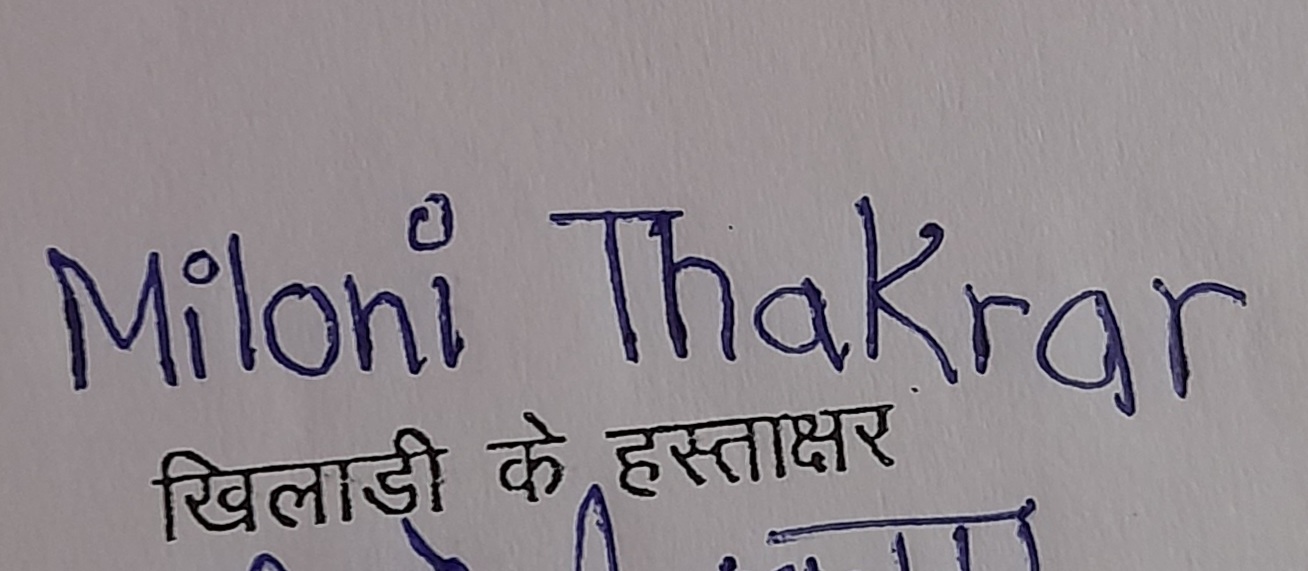 Miloni Thakrar
खिलाडी के हस्ताक्षर